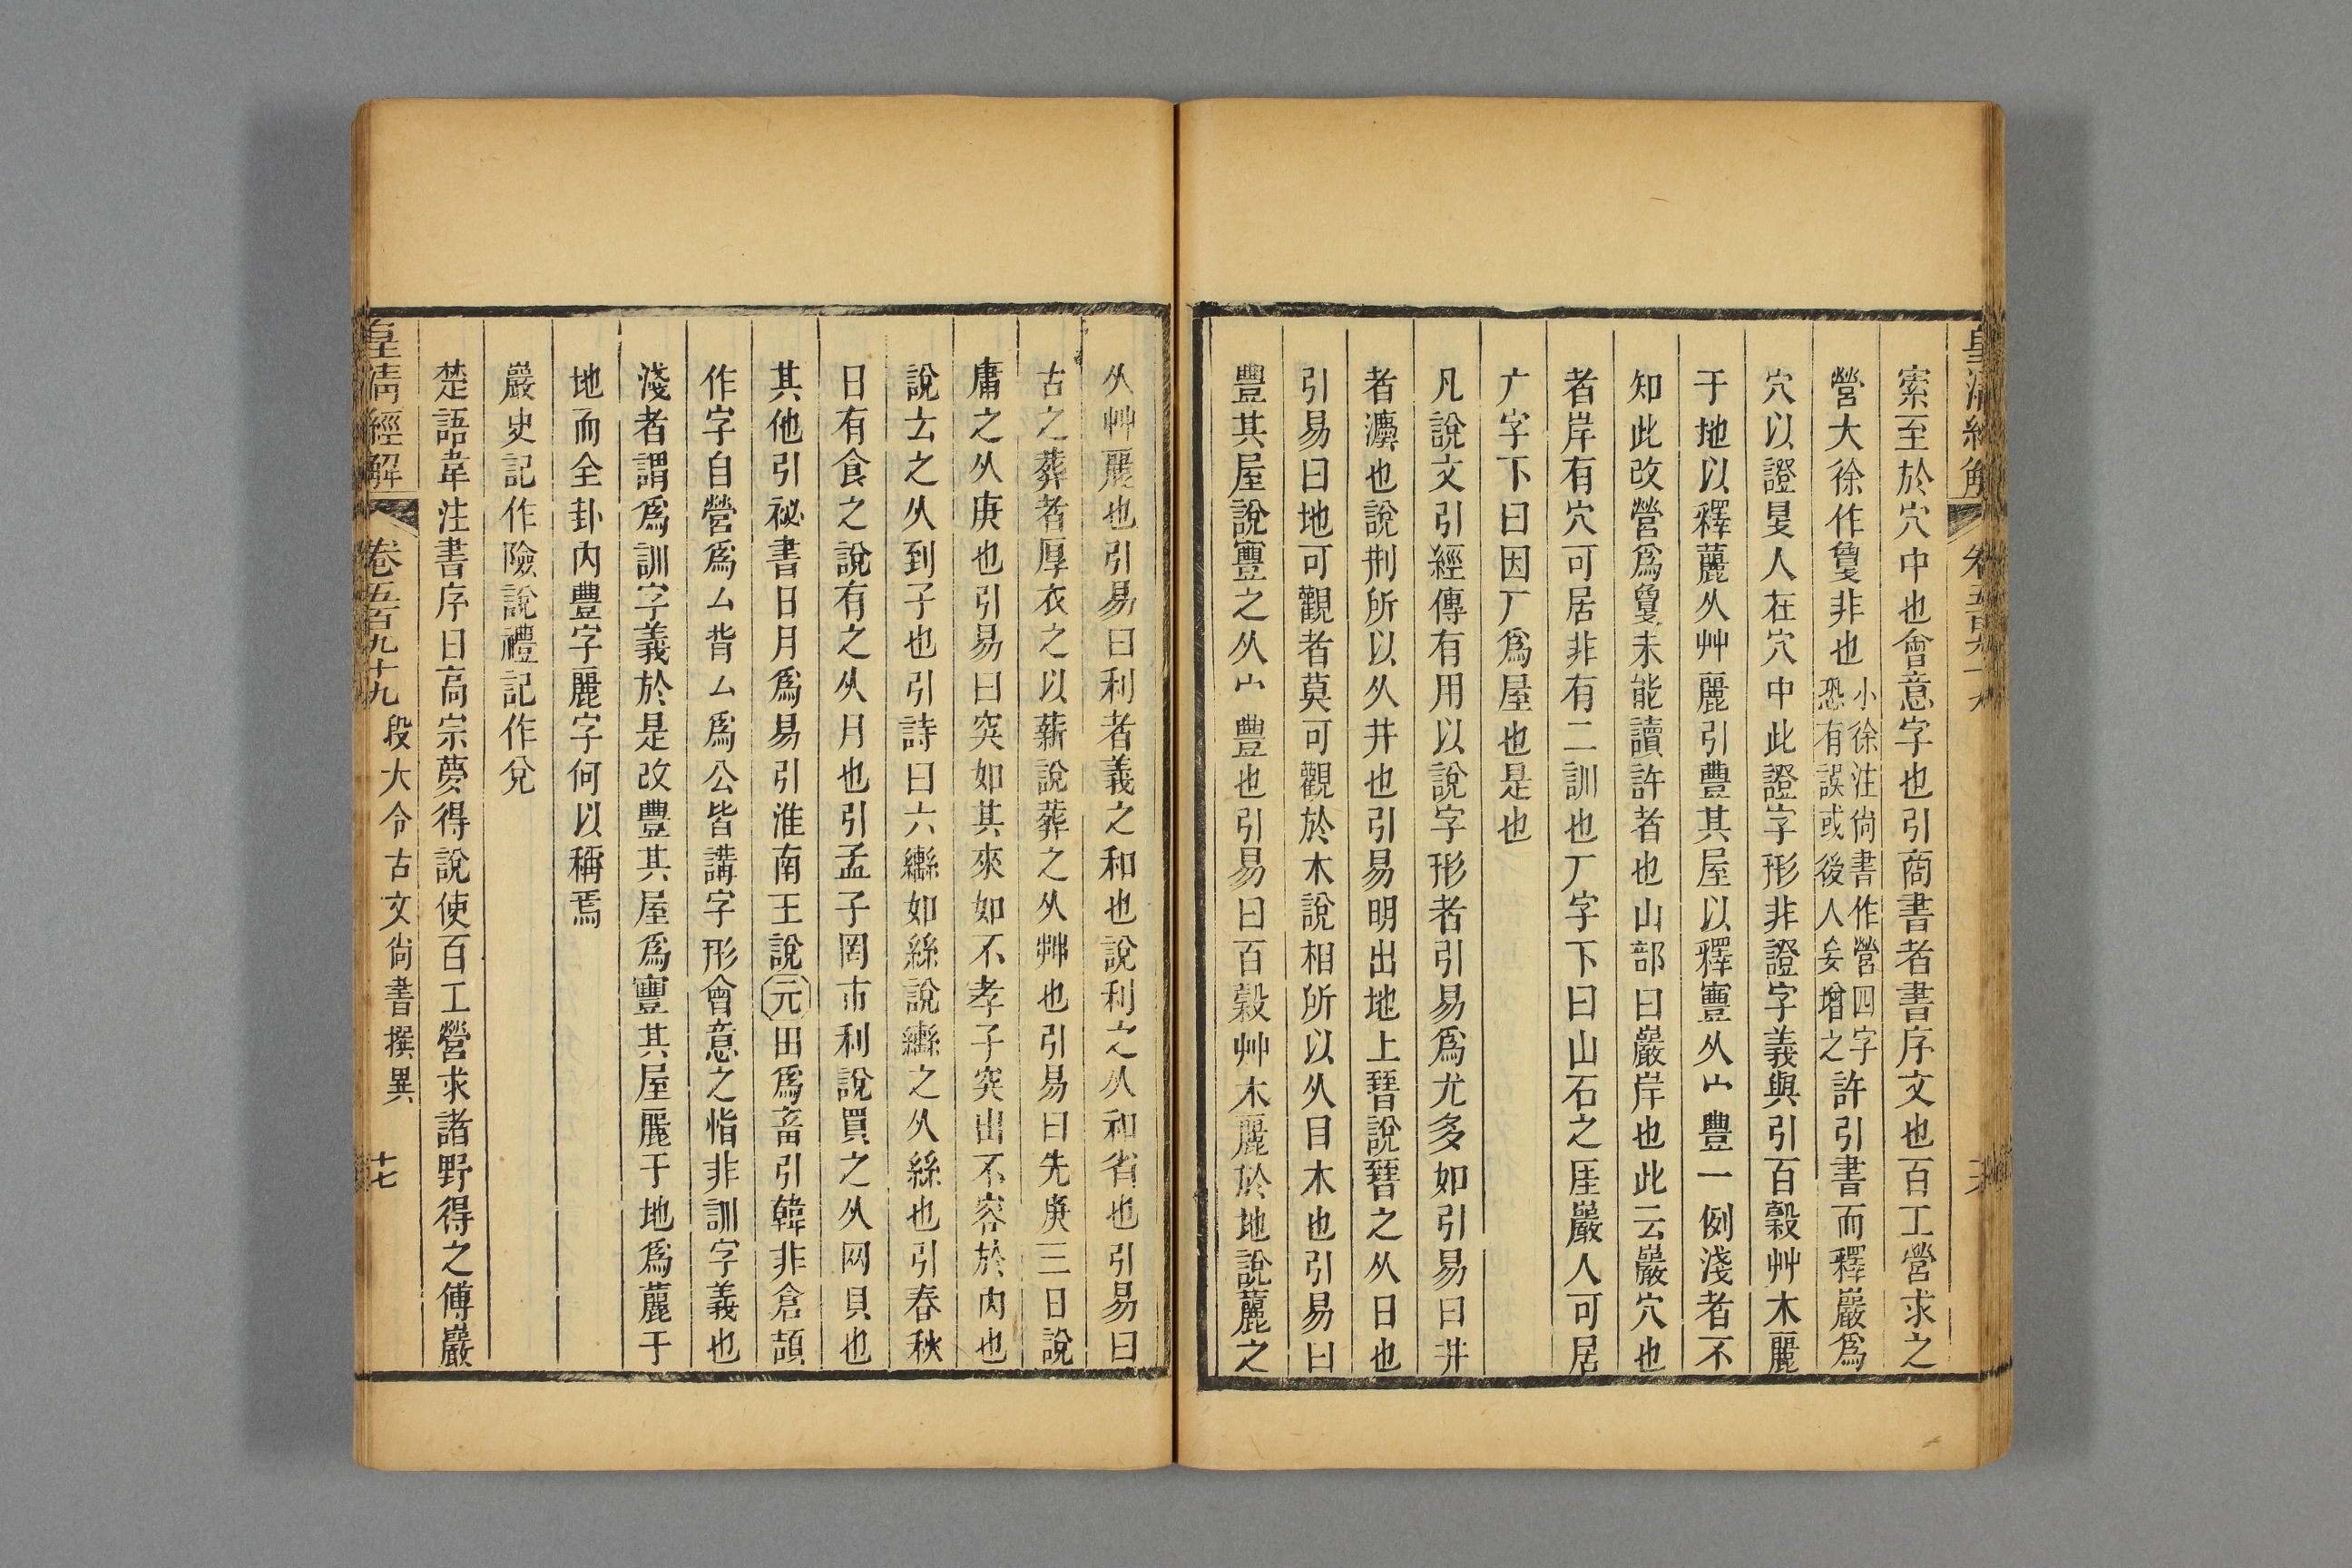 皇清經解
卷五百九十九
索至於穴中也會意字也引商書者書序文也百工營求之
營大徐作敻非也小徐注尙書作營四字恐有誤或後人妄增之許引書而釋巖爲
穴以證𡕥人在穴中此證字形非證字義與引百穀艸木麗
于地以釋䕻从艸麗引豐其屋以釋寷从宀豐一例淺者不
知此改營爲敻未能讀許者也山部曰巖岸也此云巖穴也
者岸有穴可居非有二訓也厂字下曰山石之厓巖人可居
广字下曰因厂爲屋也是也
凡說文引經傳有用以說字形者引易爲尤多如引易曰井
者灋也說刑所以从井也引易明出地上㬜說㬜之从日也
引易曰地可觀者莫可觀於木說相所以从目木也引易曰
豐其屋說寷之从宀豐也引易曰百穀艸木麗於地說䕻之
从艸麗也引易曰利者義之和也說利之从和省也引易曰
古之葬者厚衣之以薪說葬之从茻也引易曰先庚三日說
庸之从庚也引易曰突如其來如不孝子突出不容於內也
說𠫓之从到子也引詩曰六轡如絲說轡之从絲也引春秋
日有食之說有之从月也引孟子罔市利說買之从网貝也
其他引祕書日月爲易引淮南王說元田爲畜引韓非倉頡
作字自營爲厶背厶爲公皆講字形會意之恉非訓字義也
淺者謂爲訓字義於是改豐其屋爲寷其屋麗于地爲䕻于
地而全卦內豐字麗字何以稱焉
巖史記作險說禮記作兌
楚語韋注書序曰高宗夢得說使百工營求諸野得之傅巖
皇清經解
卷五百九十九
段大令古文尙書撰異
十七